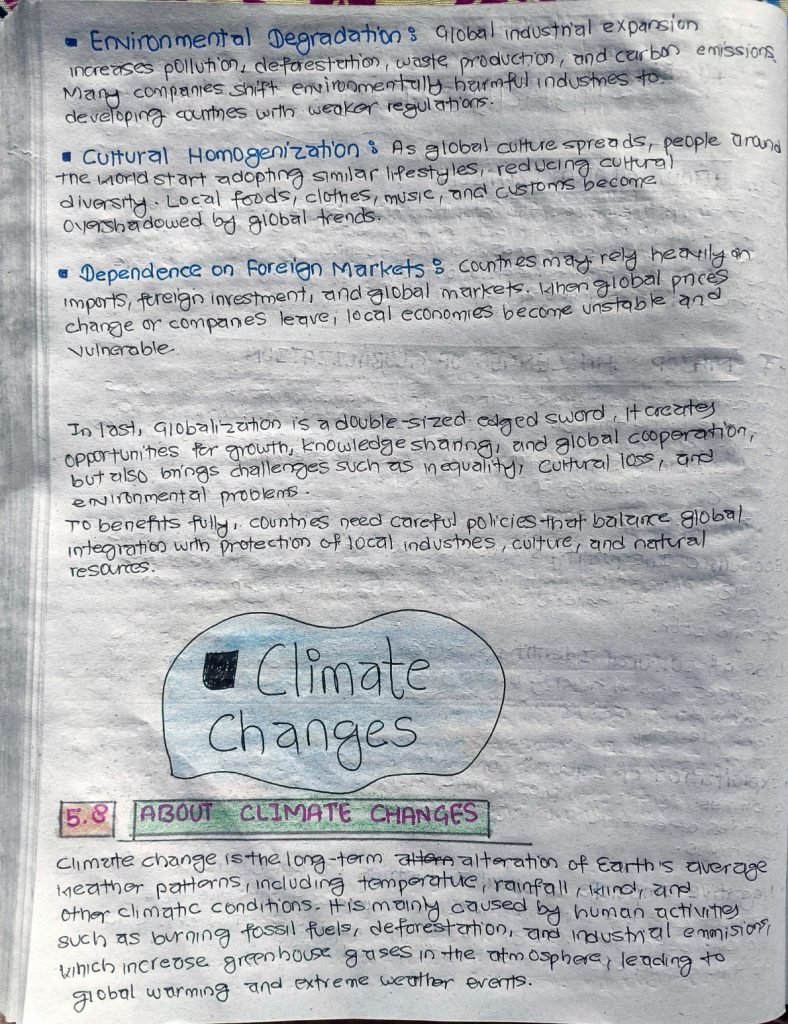 ▪ Environmental Degradation : Global industrial expansion
increases pollution, deforestation, waste production, and carbon emissions.
Many companies shift environmentally harmful industries to
developing countries with weaker regulations.
▪ Cultural Homogenization : As global culture spreads, people around
the world start adopting similar lifestyles, reducing cultural
diversity. Local foods, clothes, music, and customs become
overshadowed by global trends.
▪ Dependence on Foreign Markets : countries may rely heavily on
imports, foreign investment, and global markets. When global prices
change or companies leave, local economies become unstable and
vulnerable.
In last, Globalization is a double-sized edged sword, It creates
opportunities for growth, knowledge sharing, and global cooperation,
but also brings challenges such as inequality, cultural loss, and
environmental problems.
To benefits fully, countries need careful policies that balance global
integration with protection of local industries, culture, and natural
resources.
▪ Climate
Changes
5.8 ABOUT CLIMATE CHANGES
Climate change is the long-term altern alteration of Earth's average
weather patterns, including temperature, rainfall, wind, and
other climatic conditions. It is mainly caused by human activities
such as burning fossil fuels, deforestation, and industrial emmisions,
which increase greenhouse gases in the atmosphere, leading to
global warming and extreme weather events.